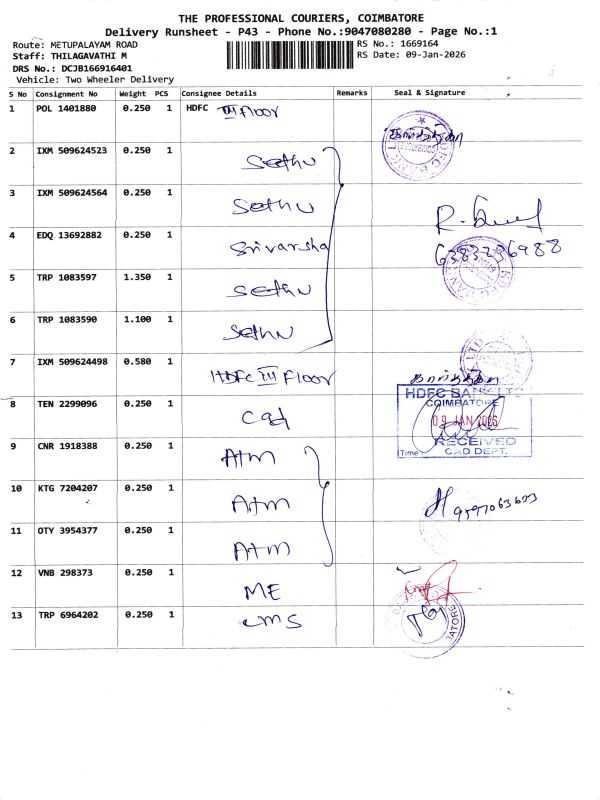 THE PROFESSIONAL COURIERS, COIMBATORE
Delivery Runsheet - P43 - Phone No.:9047080280 - Page No.:1
Route: METUPALAYAM ROAD
RS No.: 1669164
Staff: THILAGAVATHI M
RS Date: 09-Jan-2026
DRS No.: DCJB166916401
Vehicle: Two Wheeler Delivery
S No Consignment No Weight PCS Consignee Details Remarks Seal & Signature
1 POL 1401880 0.250 1 HDFC III Floor
2 IXM 509624523 0.250 1 Sethu
3 IXM 509624564 0.250 1 Sethu
4 EDQ 13692882 0.250 1 Srivarsha
6383236988
5 TRP 1083597 1.350 1 Sethu
6 TRP 1083590 1.100 1 Sethu
7 IXM 509624498 0.580 1 HDFC III Floor கார்த்திகா
8 TEN 2299096 0.250 1 Cad
HDFC BANK LTD
COIMBATORE
09 JAN 2026
RECEIVED
Time: CAD DEPT.
9 CNR 1918388 0.250 1 ATM
10 KTG 7204207 0.250 1 ATM
11 OTY 3954377 0.250 1 ATM
12 VNB 298373 0.250 1 ME
13 TRP 6964202 0.250 1 CMS